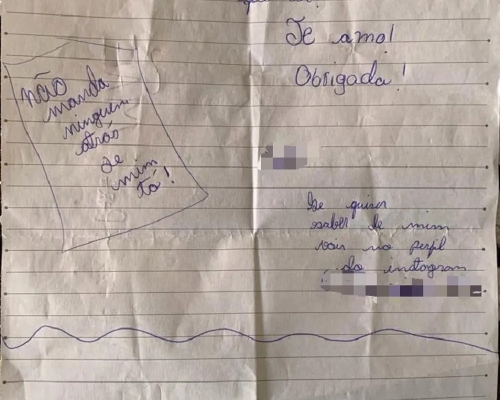 Te amo!
Obrigada!
não
manda
ninguem
atrás
de
mim
tá!
Se quiser
saber de mim
vai no perfil
do instagram